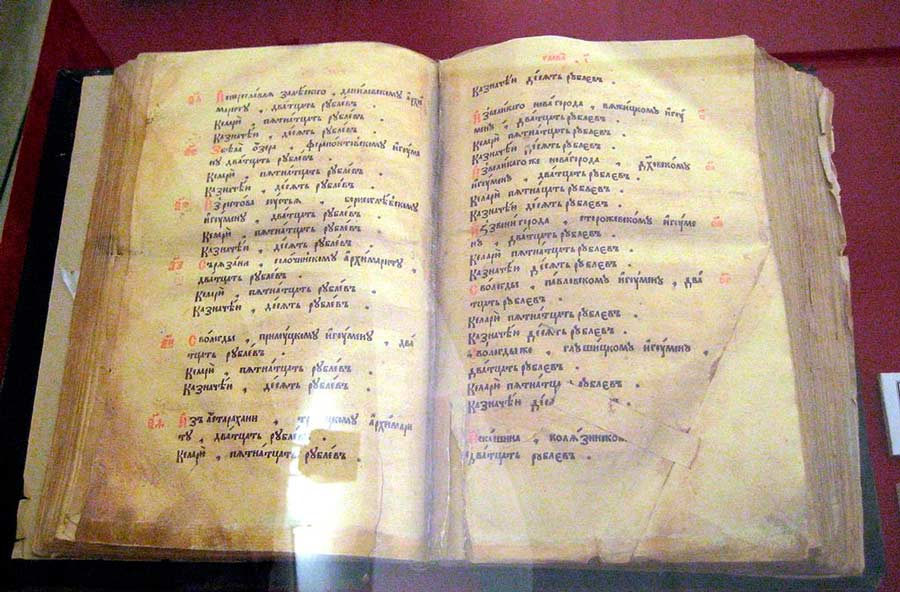 Ис переславля залѣского , даниловскому архи
мариту , дватцать рублевъ .
Келарю , пятнатцать рублевъ .
Казначѣи , десять рублевъ .
Збѣла озера , ферапонтовскому игуме
ну дватцать рублевъ .
Келарю пятнатцать рублевъ
Казначѣи , десять рублевъ .
Из ростова съустья , борисоглѣбскому
игумену , дватцать рублевъ .
Келарю пятнатцать рублевъ .
Казначѣи , десять рублевъ .
Сърязани , солочинскому архимариту ,
дватцать рублевъ .
Келарю , пятнатцать рублевъ .
Казначѣи , десять рублевъ .
Свологды , прилуцкому игумену , два
тцать рублевъ .
Келарю , пятнатцать рублевъ .
Казначѣи , десять рублевъ .
Изъ астарахани , троицкому архимари
ту , дватцать рублевъ .
Келарю , пятнатцать рублевъ .
глава , і
Казначѣи десять рублевъ .
Извеликого новагорода , вяжицкому игу
мену , дватцать рублевъ .
Келарю пятнатцать рублевъ .
Казначѣи десять рублевъ .
Извеликогоже новагорода , духовскому
игумену , дватцать рублевъ .
Келарю пятнатцать рублевъ .
Казначѣи десять рублевъ .
Иззвенигорода , сторожевскому игуме
ну , дватцать рублевъ .
Келарю пятнатцать рублевъ .
Казначѣи десять рублевъ .
Свологды , павловскому игумену , два
тцать рублевъ .
Келарю пятнатцать рублевъ .
Казначѣи десять рублевъ .
Свологдыже , глушицкому игумену ,
дватцать рублевъ .
Келарю пятнатца рублевъ .
Казначѣи деся
Искашина , колязинском
дватцать рублевъ .